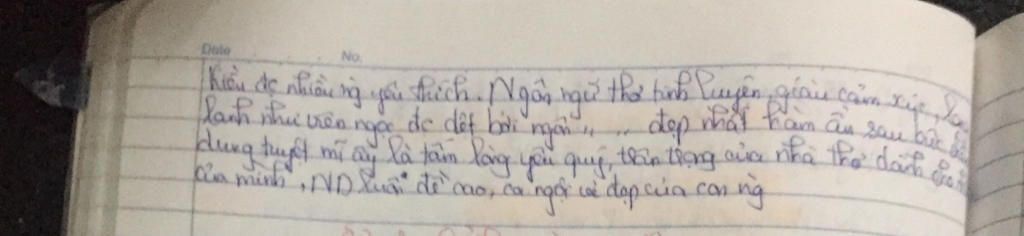 Date No.
Kiều đc nhiều ng yêu thích. Ngôn ngữ thơ tinh luyện, giàu cảm xúc,
lanh như viên ngọc đc dệt bởi ngôi " " đẹp nhất hàm ẩn sau bức
dung tuyệt mĩ ấy là tấm lòng yêu quý, trân trọng của nhà thơ dành cho
của mình, ND luôn đề cao, ca ngợi vẻ đẹp của con ng